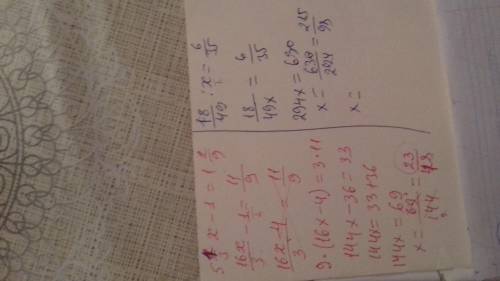 5 1/3 x - 1 = 1 2/9
16x/3 - 1 = 11/9
16x-4/3 = 11/9
9·(16x-4) = 3·11
144x-36 = 33
144x = 33+36
144x = 69
x = 69/144 = 23/48
18/49 : x = 6/35
18/49x = 6/35
294x = 630
x = 630/294 = 215/98
x =